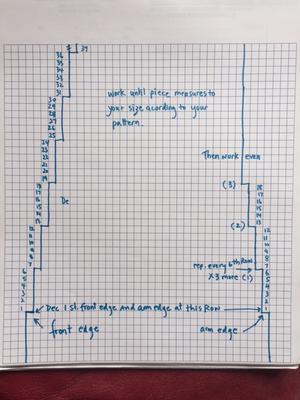 37
36
35
34
33
32
31
30
29
28
27
26
25
24
23
22
21
20
19
18
17
16
15
14
13
12
11
10
9
8
7
6
5
4
3
2
1
work until piece measures to
your size acording to your
pattern.
Then work even
(3) 18
17
16
15
14
13
De
(2)
12
11
10
9
8
7
rep. every 6th Row
x 3 more (1)
6
5
4
3
2
1
Dec 1 st. front edge and arm edge at this Row
front edge
arm edge